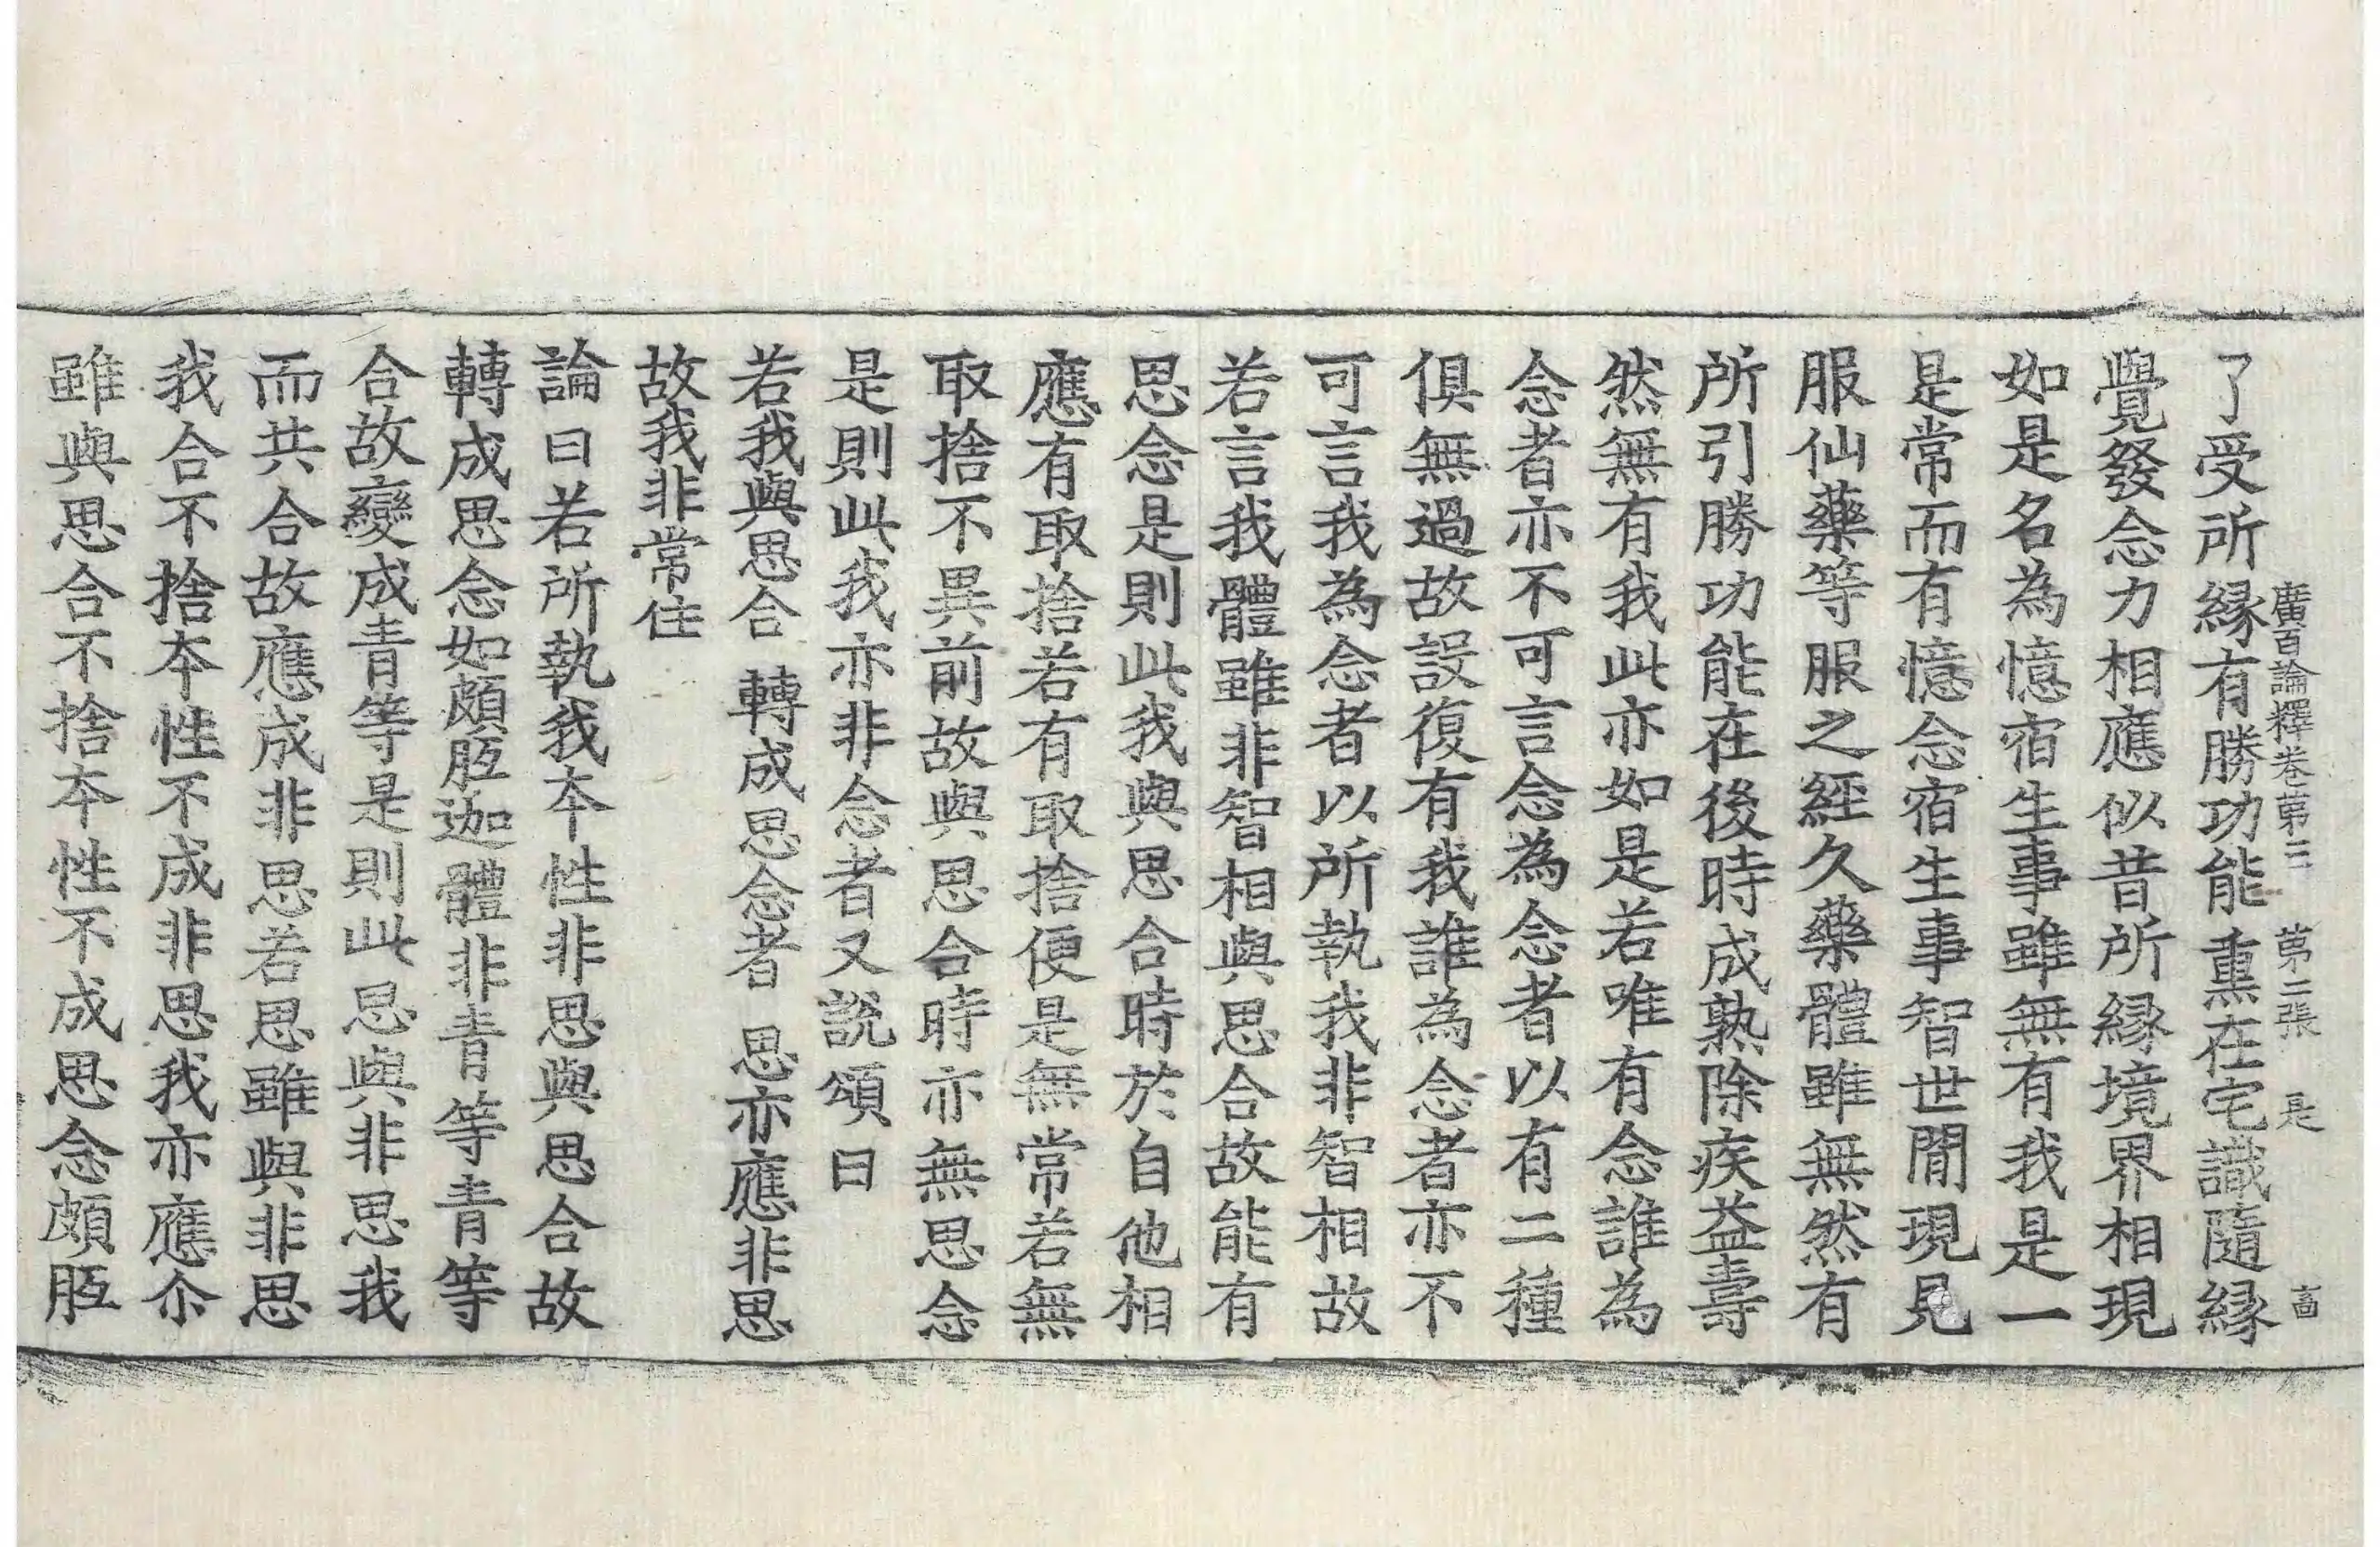 廣百論釋卷第三 第二張 是
了受所縁有勝功能熏在宅識隨縁
覺發念力相應似昔所縁境界相現
如是名為憶宿生事雖無有我是一
是常而有憶念宿生事智世間現見
服仙藥等服之經久藥體雖無然有
所引勝功能在後時成熟除疾益壽
然無有我此亦如是若唯有念誰為
念者亦不可言念為念者以有二種
俱無過故設復有我誰為念者亦不
可言我為念者以所執我非智相故
若言我體雖非智相與思合故能有
思念是則此我與思合時於自他相
應有取捨若有取捨便是無常若無
取捨不異前故與思合時亦無思念
是則此我亦非念者又說頌曰
若我與思合 轉成思念者 思亦應非思
故我非常住
論曰若所執我本性非思與思合故
轉成思念如頗胝迦體非青等青等
合故變成青等是則此思與非思我
而共合故應成非思若思雖與非思
我合不捨本性不成非思我亦應尒
雖與思合不捨本性不成思念頗胝